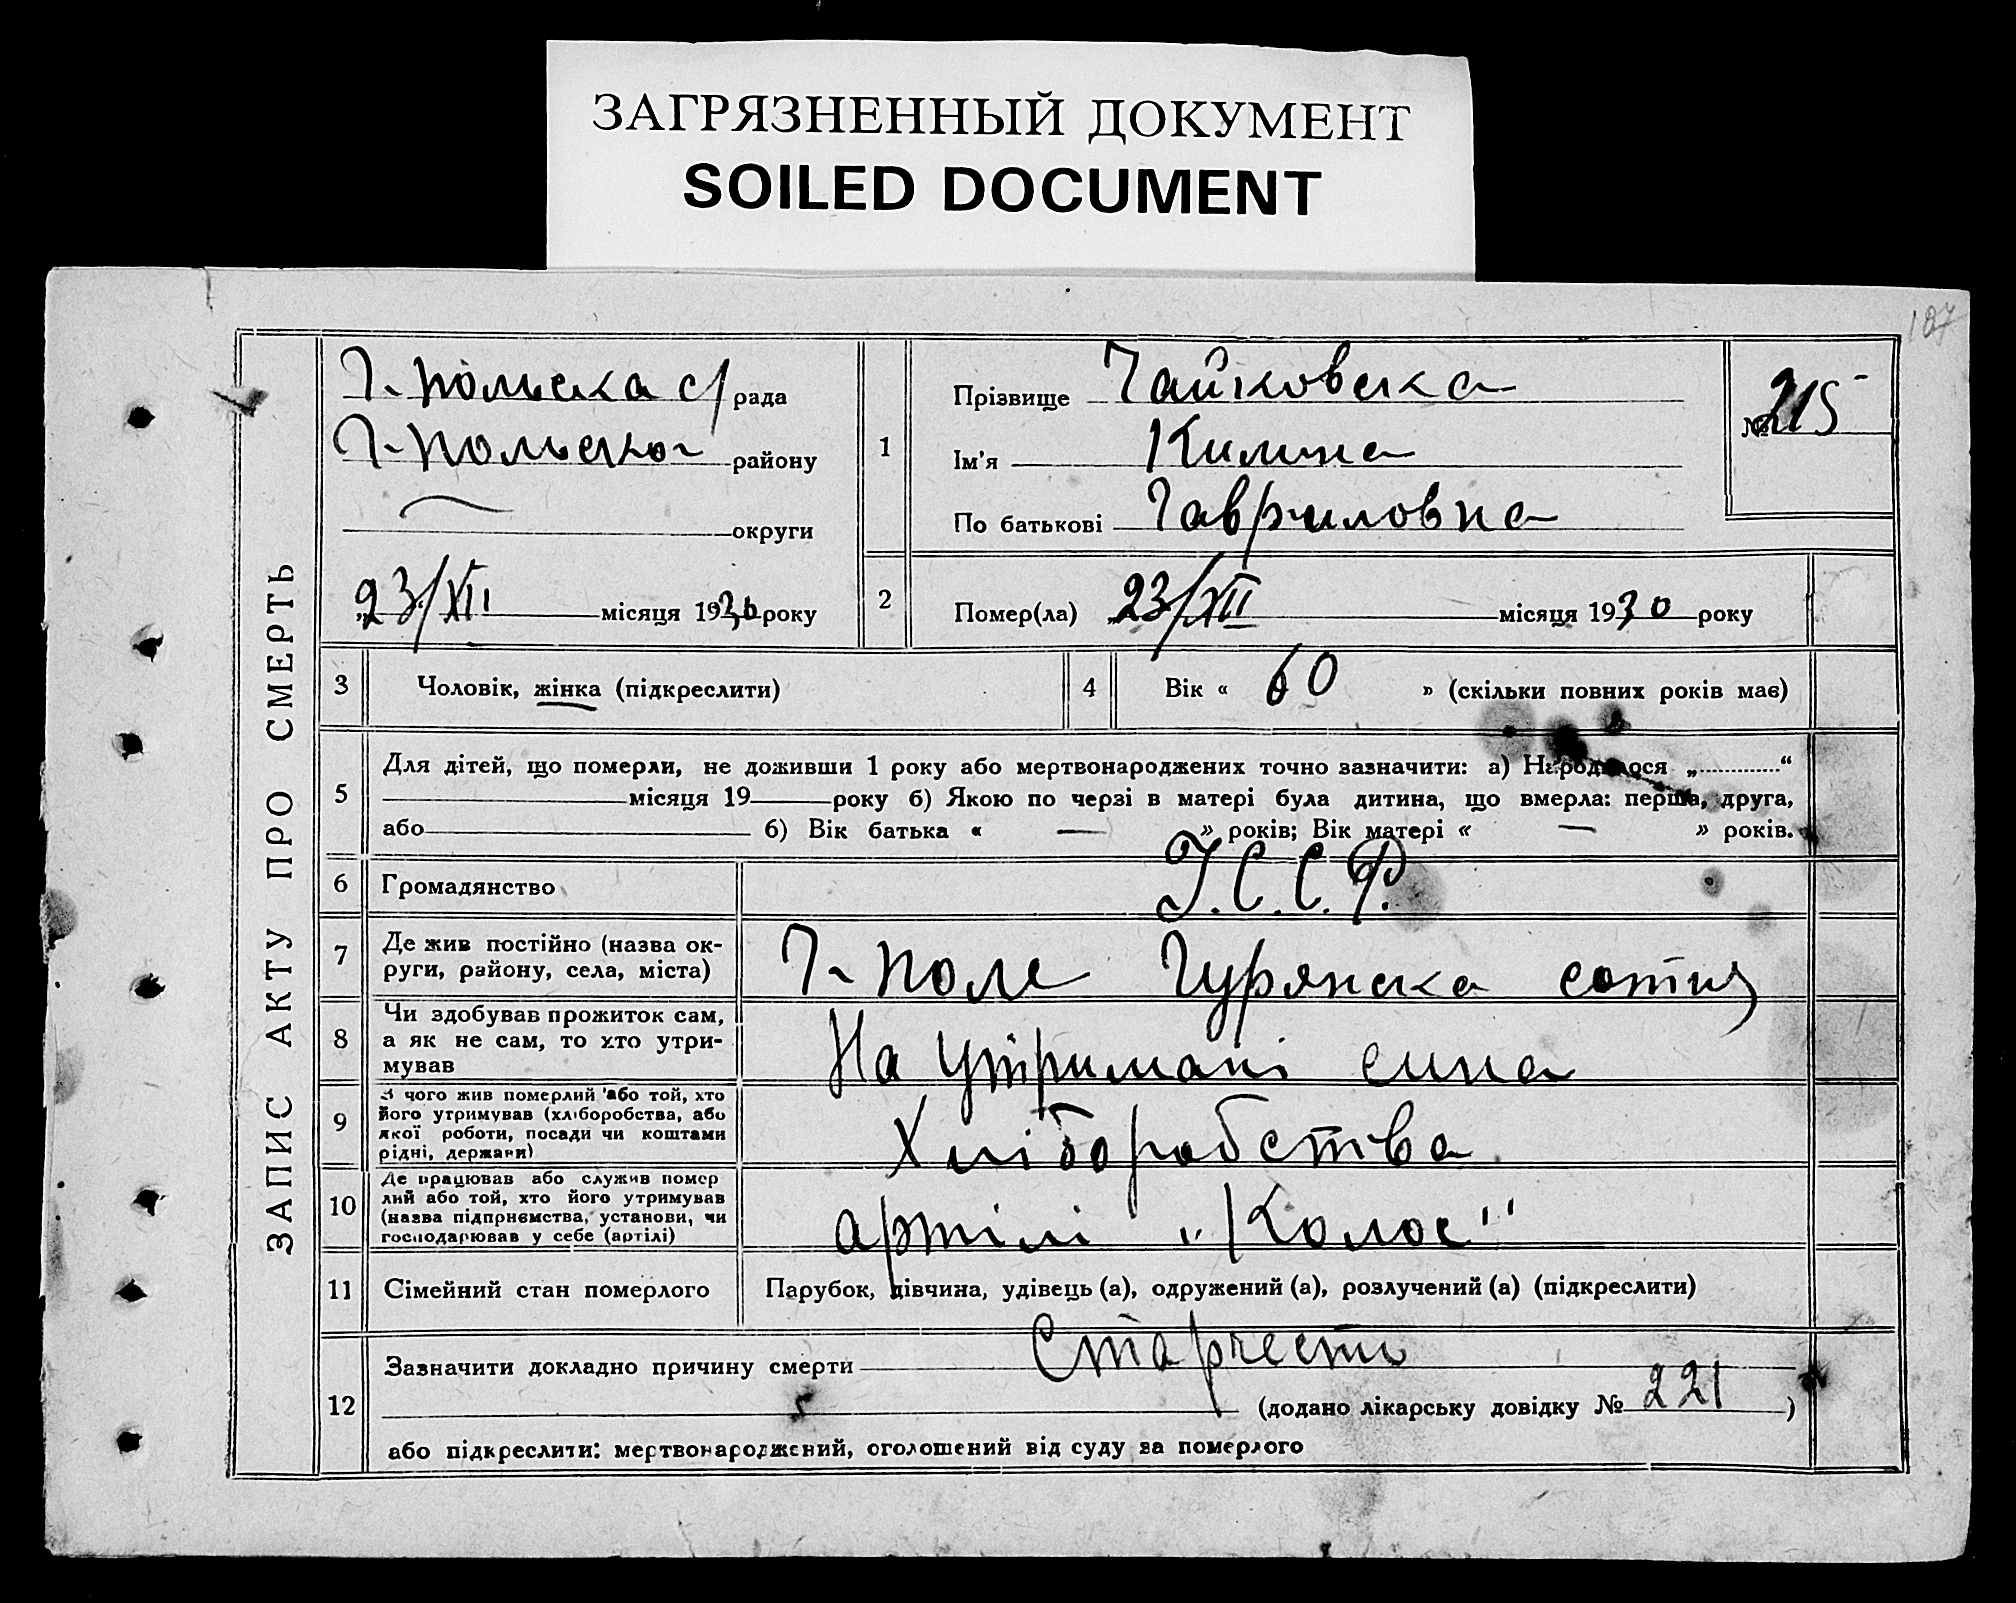 ЗАГРЯЗНЕННЫЙ ДОКУМЕНТ
SOILED DOCUMENT
187
ЗАПИС АКТУ ПРО СМЕРТЬ
Г-польска с/рада
Г-польского району
округи
„23/XII місяця 1930 року
1
Прізвище Чайковска
Ім'я Килина
По батькові Гавриловна
№ 215
2 Помер(ла) „23/XII місяця 1930 року
3 Чоловік, жінка (підкреслити)
4 Вік « 60 » (скільки повних років має)
5 Для дітей, що померли, не доживши 1 року або мертвонароджених точно зазначити: а) Народилося „ “
місяця 19 року б) Якою по черзі в матері була дитина, що вмерла: перша, друга,
або б) Вік батька « — » років; Вік матері « — » років.
6 Громадянство У.С.С.Р.
7 Де жив постійно (назва ок-
руги, району, села, міста) Г-поле Гурянска сотня
8 Чи здобував прожиток сам,
а як не сам, то хто утри-
мував На утримані сина
9 З чого жив померлий або той, хто
його утримував (хліборобства, або
якої роботи, посади чи коштами
рідні, держави) Хліборобства
10 Де працював або служив помер
лий або той, хто його утримував
(назва підприємства, установи, чи
господарював у себе (артілі) артілі „Колос"
11 Сімейний стан померлого Парубок, дівчина, удівець (а), одружений (а), розлучений (а) (підкреслити)
12 Зазначити докладно причину смерти Старчесть
(додано лікарську довідку № 221 )
або підкреслити: мертвонароджений, оголошений від суду за померлого